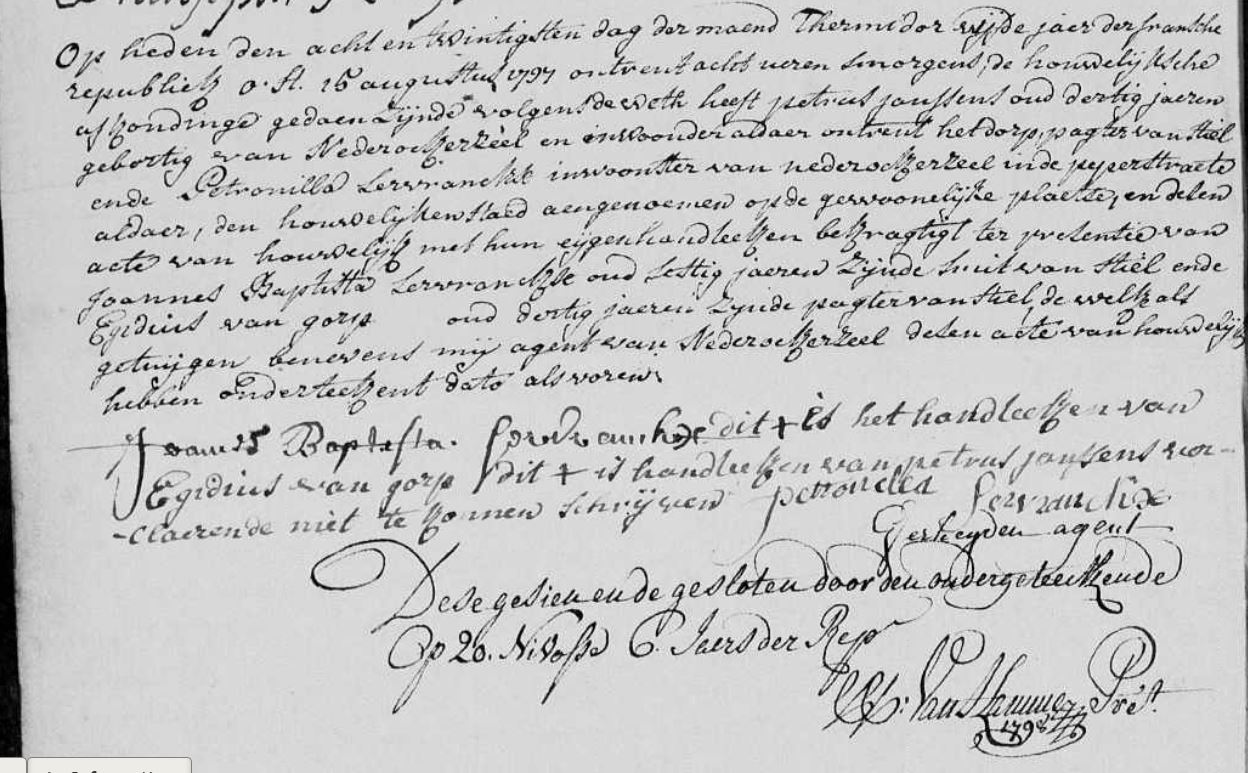 Op heden den acht en twintigsten dag der maend Thermidor vyfde jaer der fransche
republiek o. st. 15 augustus 1797 ontrent acht ueren smorgens, de houwelyksche
afkondinge gedaen zynde volgens de weth heeft petrus janssens oud dertig jaeren
gebortig van Nederockerzeel en inwoonder aldaer ontrent het dorp, pagter van stiel
ende Petronilla Servranckx inwoonster van nederockerzeel inde peperstraete
aldaer, den houwelyken staed aengenoemen op de gewoonelyke plaetse, en desen
acte van houwelyk met hun eygen handteeken bekragtigt ter presentie van
Joannes Baptista Servranckx oud sestig jaeren zynde smit van stiel ende
Egidius van gorp oud dertig jaeren zynde pagter van stiel, de welk als
getuygen benevens my agent van Nederockerzeel desen acte van houwelyk
hebben onderteekent dato als voren.
Joannes Baptista servranckx dit + is het handteeken van
Egidius van gorp dit + is handteeken van petrus janssens ver-
-claerende niet te konnen schryven petronella servranckx
agent
Dese gesien ende gesloten door den ondergeteekende
Op 20. Nivose 6. Jaers der Rep
Van Hamme Prést.
1798